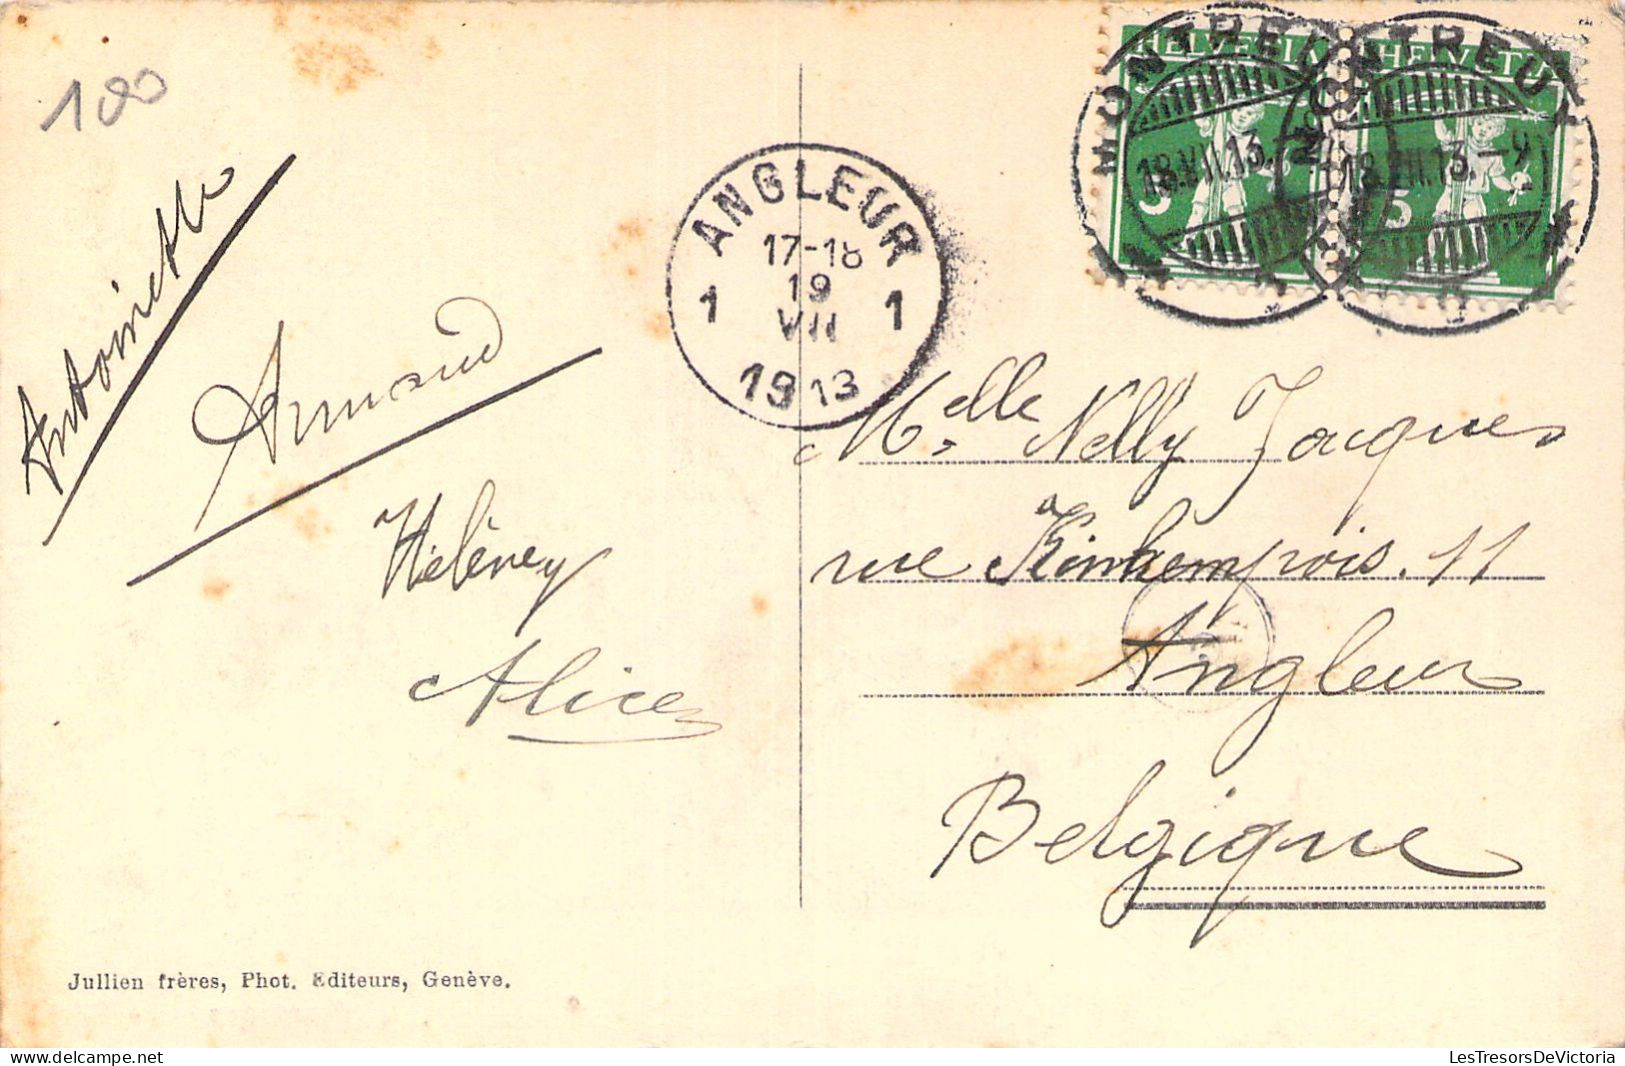 100
Antoinette
Armand
Alice
Jullien frères, Phot. Editeurs, Genève.
ANGLEUR
17-18
1 19 1
VII
1913
HELVETIA HELVETIA
MONTREUX MONTREUX
18.VII.13. 18.VII.13.-9
5 5
Melle Nelly Jacques
rue Kinkempois. 11
Angleur
Belgique
LesTresorsDeVictoria